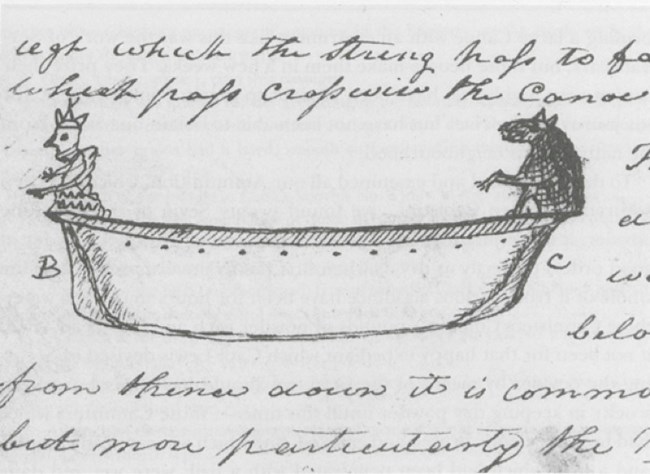 which the string pass to fa
which pass crosswise the Canoe
B C
belo
from thence down it is commo
but more particularly the